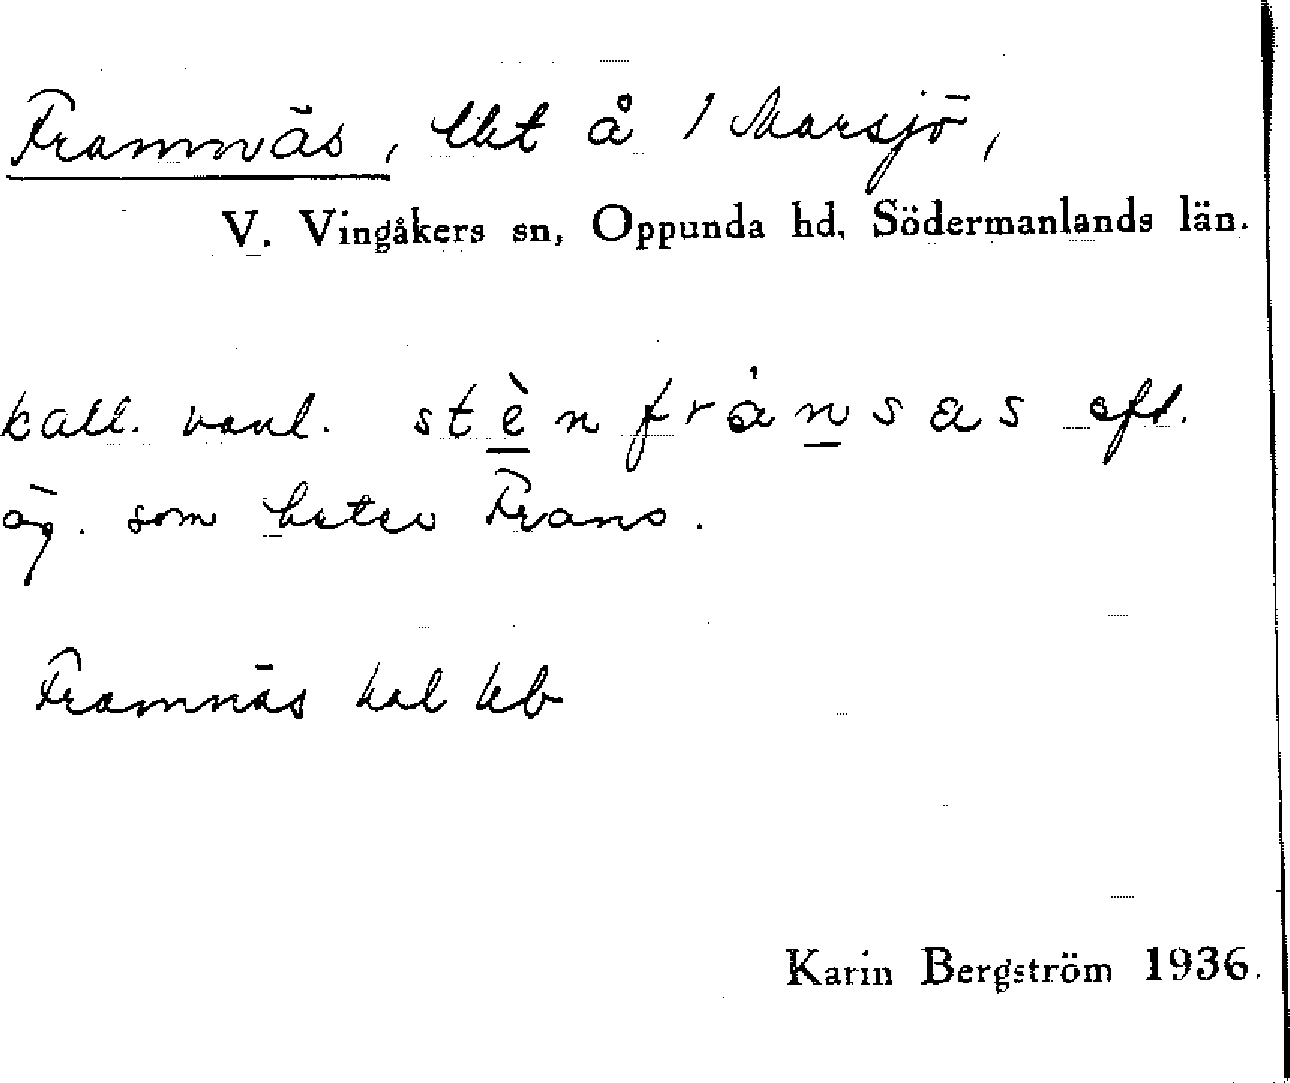 Framnäs, lht å 1 Marsjö,
V. Vingåkers sn, Oppunda hd, Södermanlands län.
kall. vanl. stènfránsas eft.
äg. som heter Frans.
Framnäs hal kb
Karin Bergström 1936.